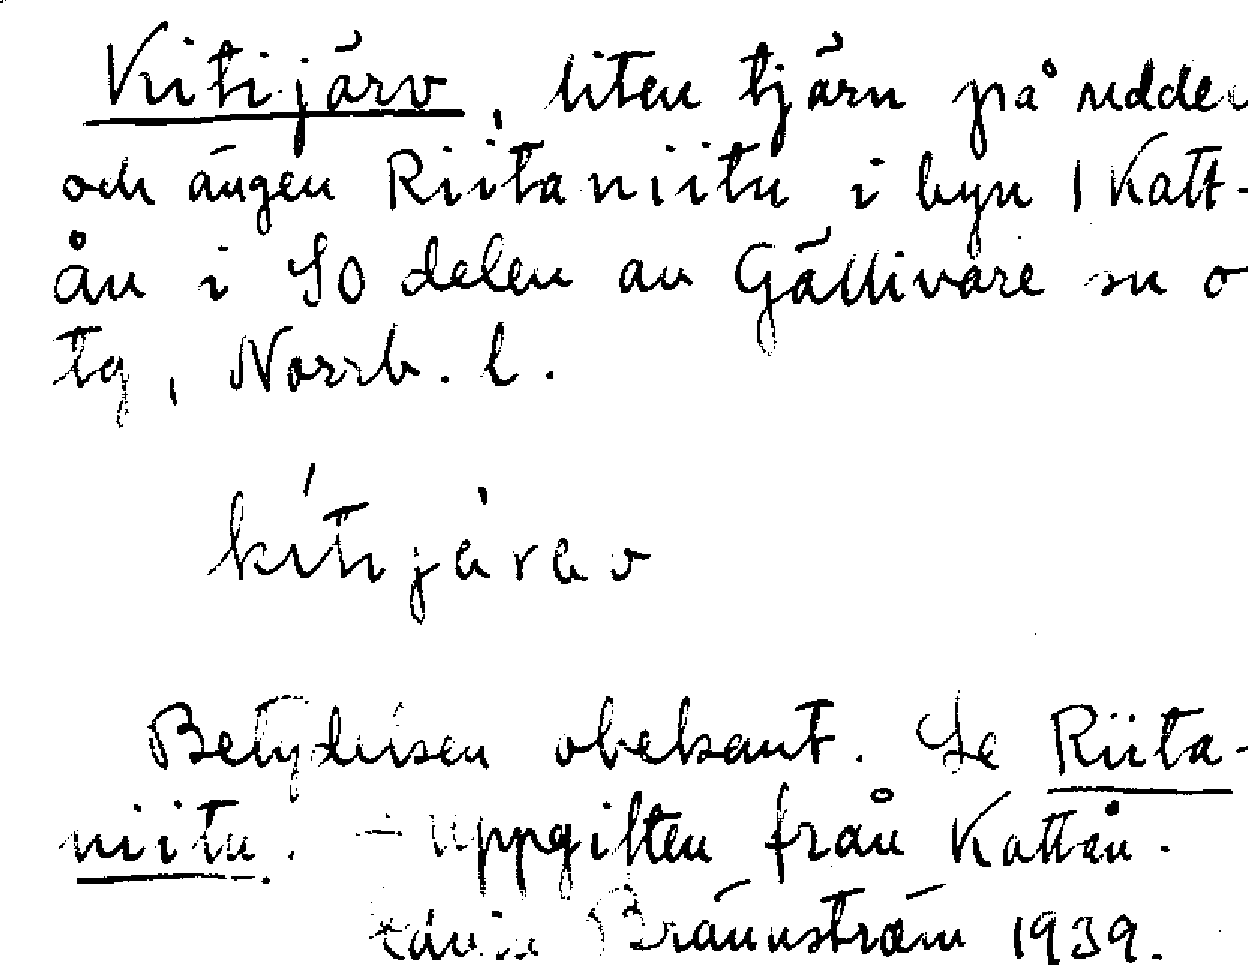 Kitijärv, liten tjärn på udden
och ängen Riitaniitu i byn 1 Katt-
ån i SO delen av Gällivare sn o
tg, Norrb. l.
kitijärav
Betydelsen obekant. Se Riita-
niitu. - Uppgiften från Kattån.
Edvin Brännström 1939.